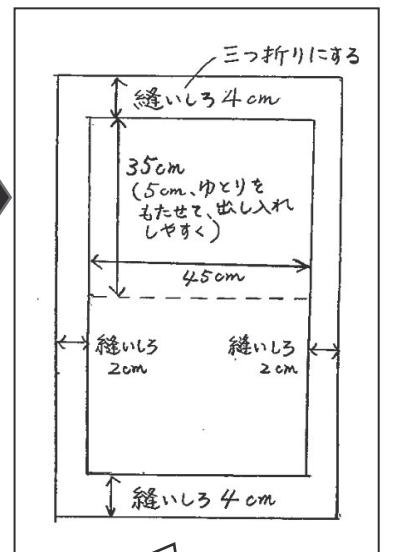 三つ折りにする
縫いしろ4cm
35cm
(5cm、ゆとりを
もたせて、出し入れ
しやすく)
45cm
縫いしろ
2cm
縫いしろ
2cm
縫いしろ4cm